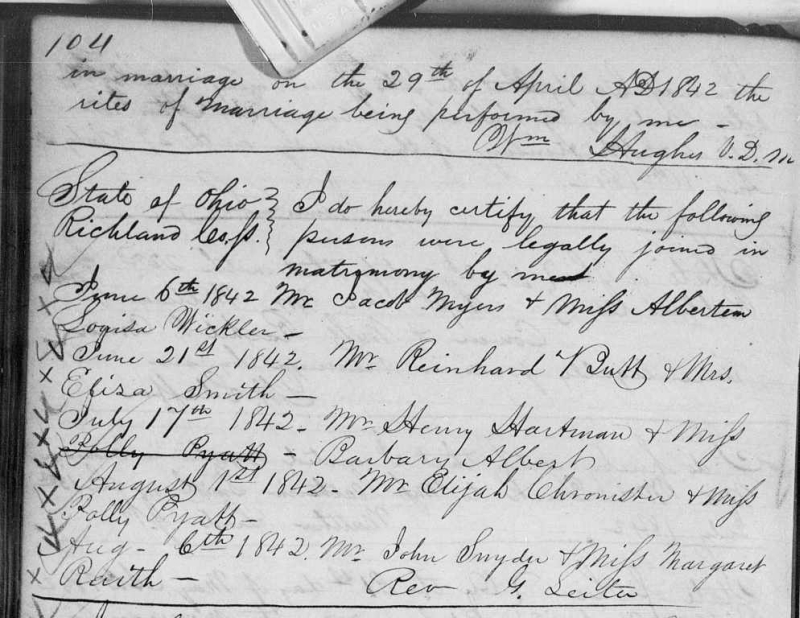 104
in marriage on the 29th of April AD 1842 the
rites of Marriage being performed by me -
Wm Hughes V. D. M
State of Ohio } I do hereby certify that the following
Richland Co. ss. } persons were legally joined in
matrimony by me
June 6th 1842 Mr Jacob Myers & Miss Albertena
Loqisa Wickler -
June 21st 1842. Mr Reinhard Butt & Mrs.
Eliza Smith -
July 17th 1842 - Mr Henry Hartman & Miss
Polly Pyatt - Barbary Albert
August 1st 1842 - Mr Elijah Chronister & Miss
Polly Pyatt -
Aug - 6th 1842. Mr John Snyder & Miss Margaret
Raith - Rev G. Leiter